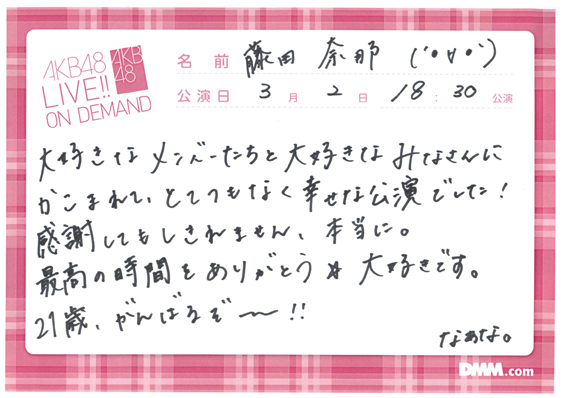 AKB48
LIVE!!
ON DEMAND
AKB
48
名前 藤田 奈那 (´•∀•`)
公演日 3月2日 18:30公演
大好きなメンバーたちと大好きなみなさんに
かこまれて、とてつもなく幸せな公演でした!
感謝してもしきれません、本当に。
最高の時間をありがとう☆大好きです。
21歳、がんばるぞ〜!!
なぁな。
DMM.com